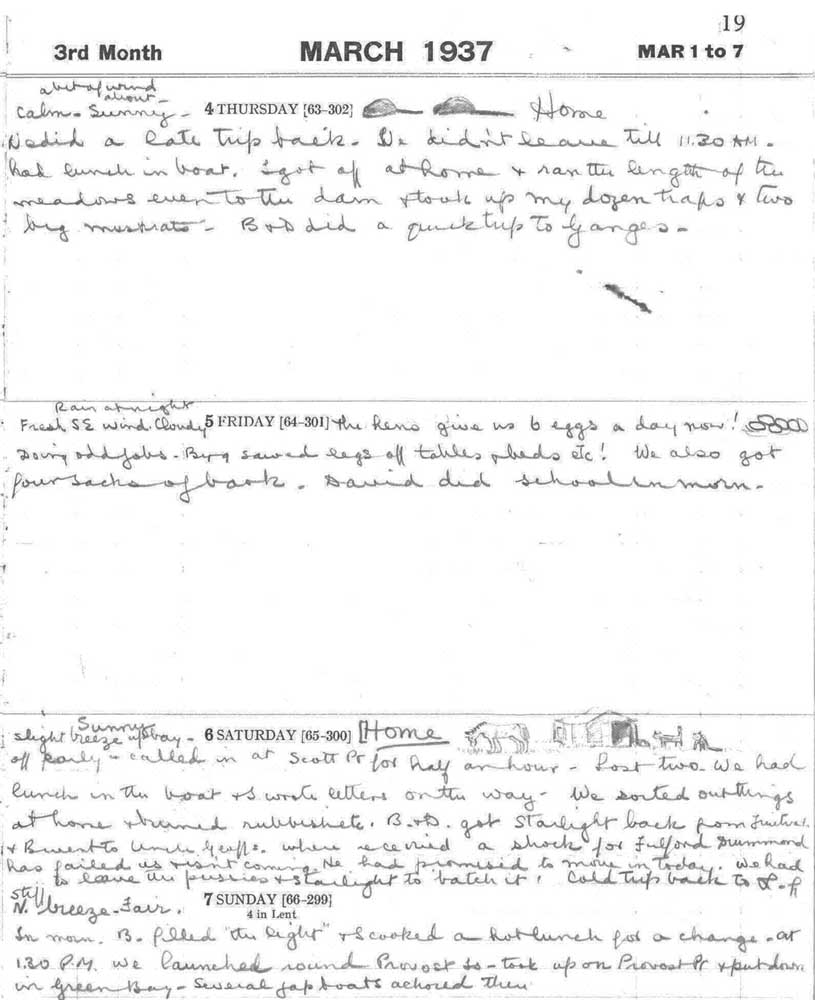 19
3rd Month MARCH 1937 MAR 1 to 7
a bit of wind
about -
Calm - Sunny - 4 THURSDAY [63-302] Home
We did a late trip back - We didn't leave till 11.30 AM -
had lunch in boat. I got off at home & ran the length of the
meadows even to the dam & took up my dozen traps & two
big muskrats - B & D did a quick trip to Ganges -
Rain at night
Fresh SE wind. Cloudy 5 FRIDAY [64-301] The hens give us 6 eggs a day now!
Doing odd jobs - sawed legs off tables & beds etc! We also got
four sacks of bark. David did school in morn -
Sunny
slight breeze up bay - 6 SATURDAY [65-300] Home
off early - called in at Scott Pt for half an hour - Lost two. We had
lunch in the boat & I wrote letters on the way - We sorted out things
at home & burned rubbish etc. B. & D. got Starlight back from
& B went to Uncle Geoff's. where received a shock for Fulford Drummond
has failed us & isn't coming. He had promised to move in today. We had
to leave the pussies & Starlight to batch it! Cold trip back to
still
N. breeze - Fair. 7 SUNDAY [66-299]
4 in Lent
In morn. B. filled "the light" & I cooked a hot lunch for a change - at
1.30 P.M. we launched round Provost So - took up on Provost Pt & put down
in Green Bay - Several jap boats achored there